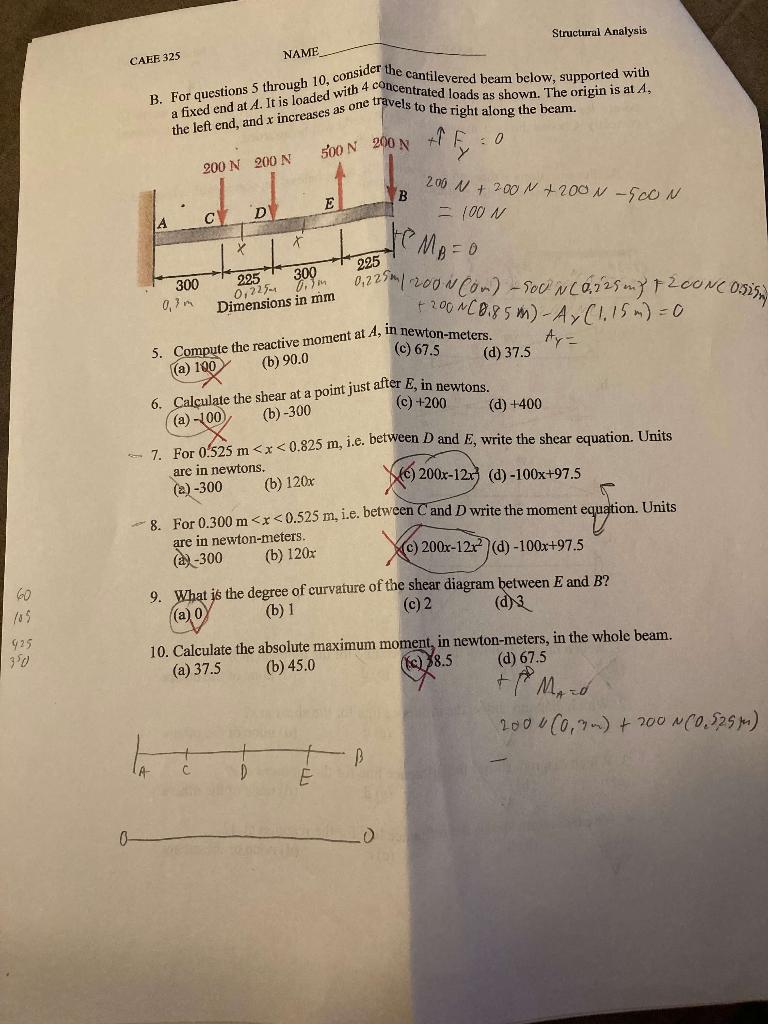 CAEE 325
NAME
Structural Analysis
B. For questions 5 through 10, consider the cantilevered beam below, supported with
a fixed end at A. It is loaded with 4 concentrated loads as shown. The origin is at A,
the left end, and x increases as one travels to the right along the beam.
200 N 200 N 500 N 200 N
A C D E B
x x
300 225 300 225
0,3m 0,225m 0,3m 0,225m
Dimensions in mm
+↑ Fy = 0
200 N + 200 N + 200 N - 500 N
= 100 N
MB = 0
200 N(0m) - 500 N(0,225m) + 200N(0.525m)
+ 200N(0.85m) - Ay(1.15m) = 0
Ay =
5. Compute the reactive moment at A, in newton-meters.
(a) 100 (b) 90.0 (c) 67.5 (d) 37.5
6. Calculate the shear at a point just after E, in newtons.
(a) -100 (b) -300 (c) +200 (d) +400
7. For 0.525 m < x < 0.825 m, i.e. between D and E, write the shear equation. Units
are in newtons.
(a) -300 (b) 120x (c) 200x-12x² (d) -100x+97.5
8. For 0.300 m < x < 0.525 m, i.e. between C and D write the moment equation. Units
are in newton-meters.
(a) -300 (b) 120x (c) 200x-12x² (d) -100x+97.5
9. What is the degree of curvature of the shear diagram between E and B?
(a) 0 (b) 1 (c) 2 (d) 3
10. Calculate the absolute maximum moment, in newton-meters, in the whole beam.
(a) 37.5 (b) 45.0 (c) 38.5 (d) 67.5
60
105
425
350
+ MA = 0
200 N(0,3m) + 200 N(0.525m)
-
A C D E B
0 0